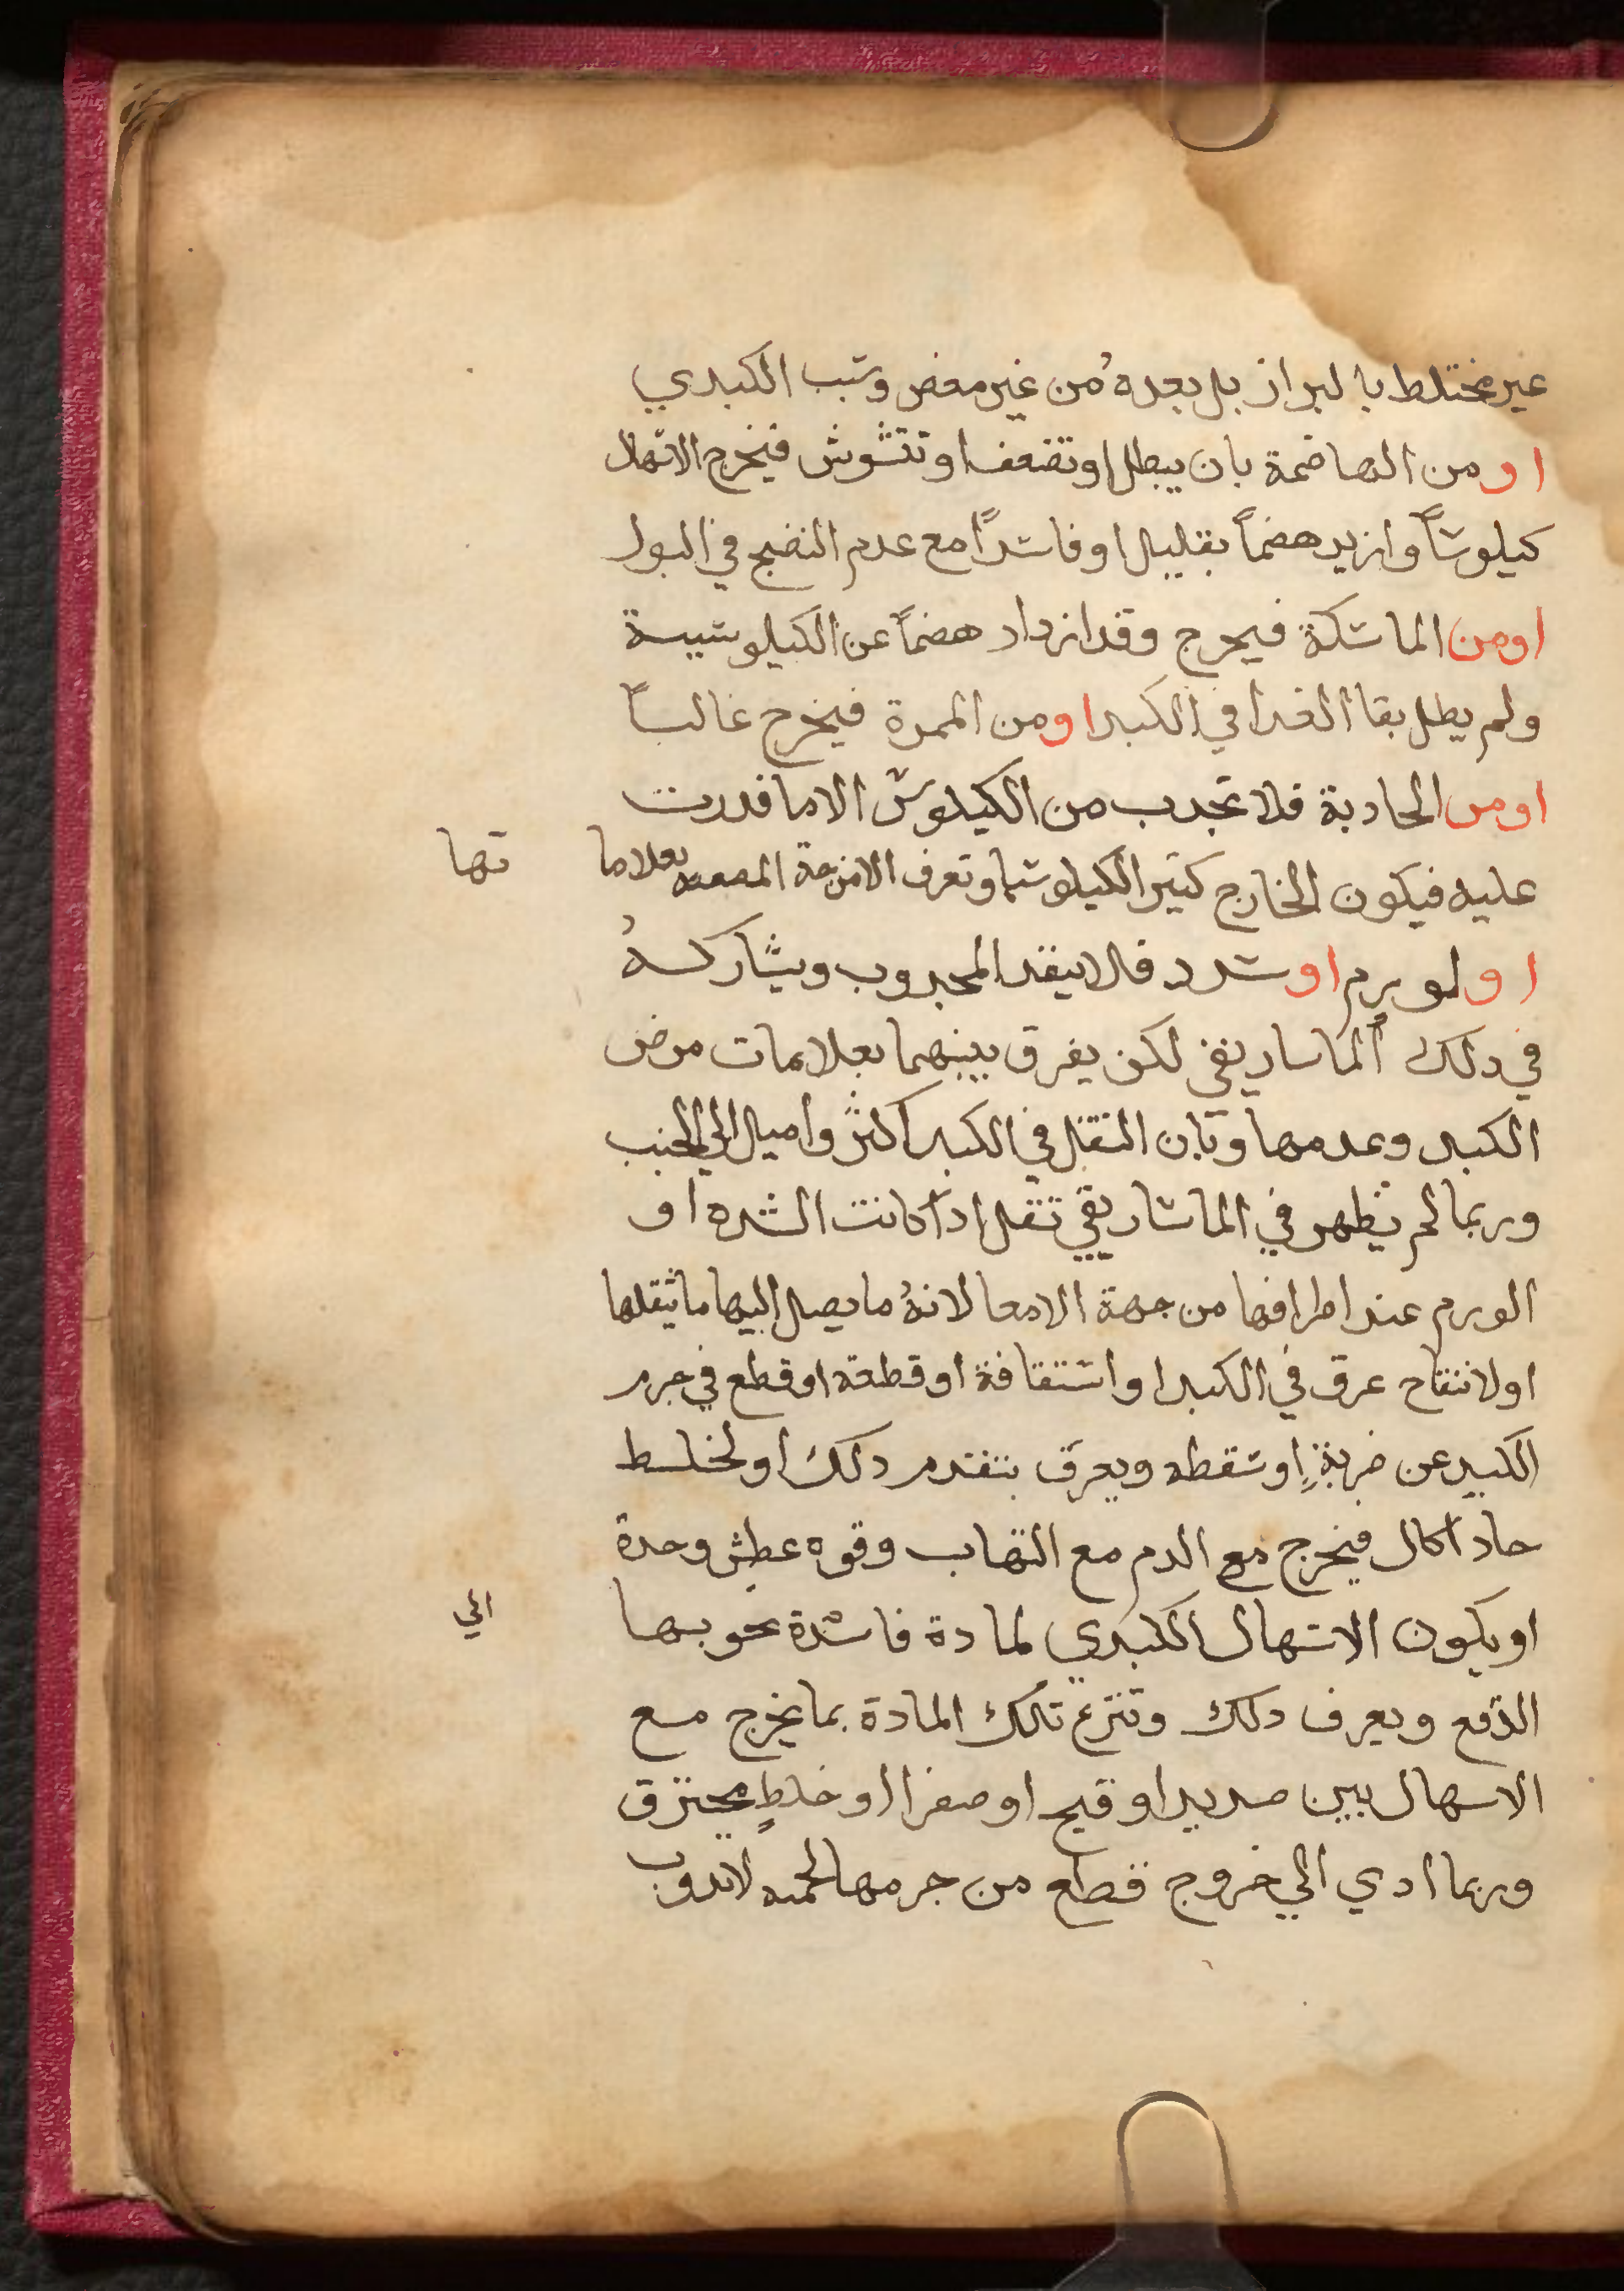 غير مختلط بالبراز بل بعده من غير مغص وسبب الكبدي
او من الهاضمة بان يبطل او تضعف او تتشوش فيخرج الاسهال
كيلوساً وازيد هضماً بقليل او فاسداً مع عدم النضج في البول
او من الماسكة فيخرج وقد ازداد هضماً عن الكيلوسية
ولم يطل بقا الغدا في الكبد او من المميزة فيخرج غالباً
او من الجادبة فلا تجدب من الكيلوس الا ما قدرت
عليه فيكون الخارج كثير الكيلوسيا وتعرف الامزجة المضعفة بعلاما تها
او لورم او سدد فلا ينفد المجدوب ويشاركه
في دلك الماساريقي لكن يفرق بينهما بعلامات مرض
الكبد وعدمها وبان الثقل في الكبد اكثر واميل الي الجنب
وربما لم يظهر في الماساريقي ثقل ادا كانت السده او
الورم عند اطرافها من جهة الامعا لانه ما يصل اليها ما يثقلها
او لانفتاح عرق في الكبد او انشقاقه او قطعه او قطع في جرم
الكبد عن ضربةٍ او سقطه ويعرف بتقدم دلك او لخلط
حاد اكال فيخرج مع الدم مع التهاب وقوه عطش وحدة
او يكون الاسهال الكبدي لمادة فاسدة تحوجها الي
الدفع ويعرف دلك وتنزع تلك المادة بما يخرج مع
الاسهال بين صديد او قيح او صفرا او خلطٍ محترق
وربما ادي الي خروج قطع من جرمها لحميه لا تدوب